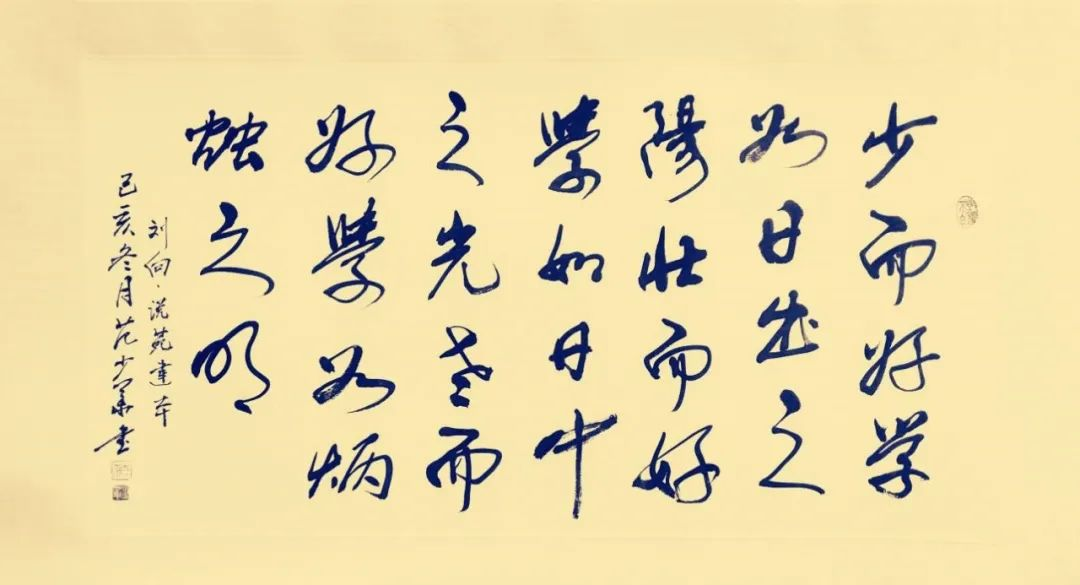 少而好学
如日出之
陽壮而好
學如日中
之光老而
好學如炳
烛之明
刘向·说苑建本
己亥冬月范少书